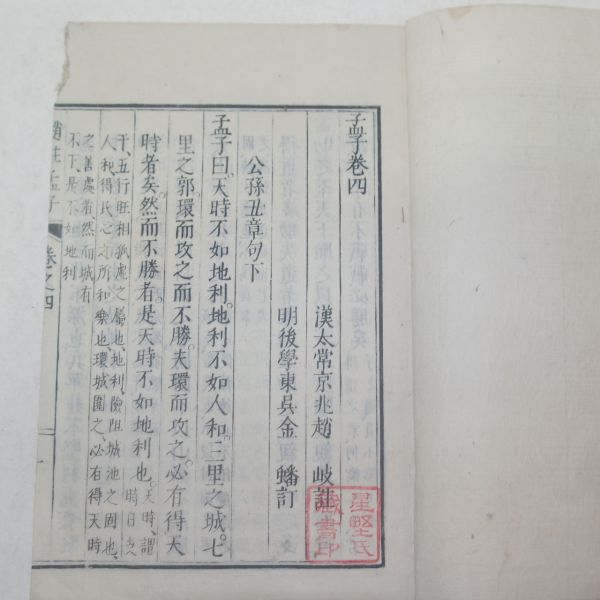 孟子卷四
漢太常京兆趙 岐註
明後學東吳金 蟠訂
公孫丑章句下
孟子曰。天時不如地利。地利不如人和。三里之城。七
里之郭。環而攻之而不勝。夫環而攻之。必有得天
時者矣。然而不勝者。是天時不如地利也。天時、謂
時日支
干、五行旺相孤虛之屬也、地利、險阻城池之固也、
人和、得民心之所和樂也、環城圍之、必有得天時
之善處者、然而城有
不下、是不如地利
趙註孟子 卷之四
星野氏
藏書印